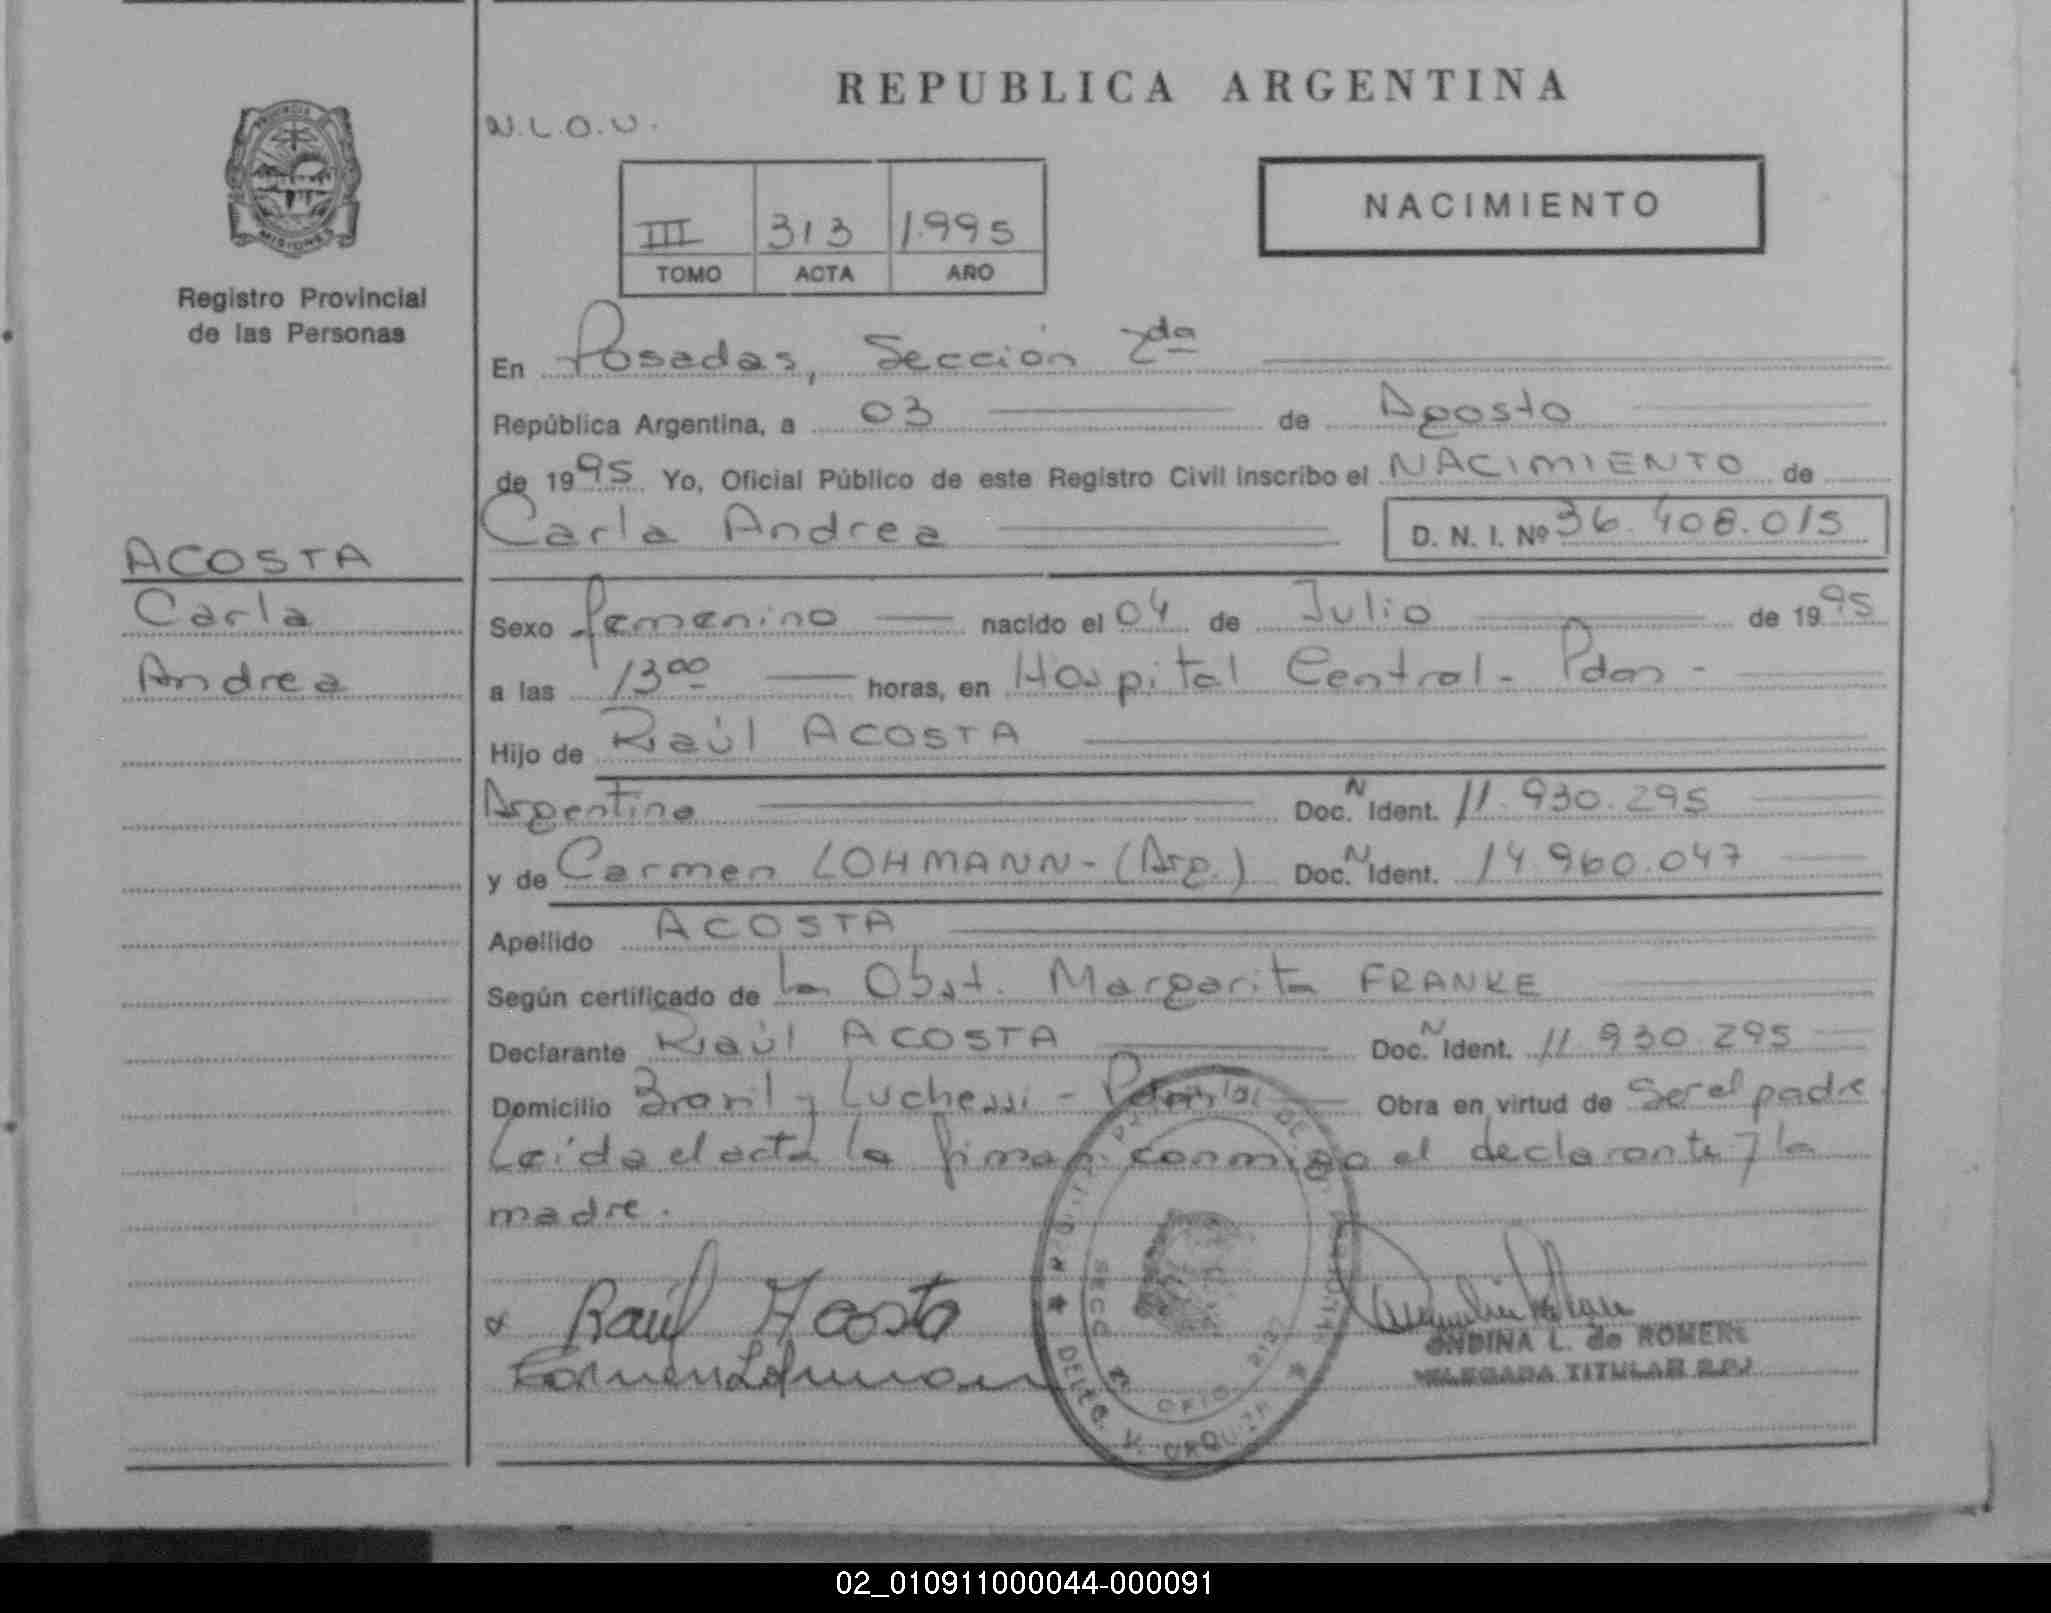 REPUBLICA ARGENTINA
N.L.O.U.
PROVINCIA
MISIONES
Registro Provincial
de las Personas
III 313 1.995
TOMO ACTA AÑO
NACIMIENTO
En Posadas, Sección 2da
República Argentina, a 03 de Agosto
de 1995 Yo, Oficial Público de este Registro Civil inscribo el NACIMIENTO de
Carla Andrea D. N. I. Nº 36.408.015
ACOSTA
Carla
Andrea
Sexo femenino nacido el 04 de Julio de 1995
a las 13 00 horas, en Hospital Central - Pdas -
Hijo de Raúl ACOSTA
Argentino Doc. N Ident. 11.930.295
y de Carmen LOHMANN - (Arg.) Doc. N Ident. 14.960.047
Apellido ACOSTA
Según certificado de la Obst. Margarita FRANKE
Declarante Raúl ACOSTA Doc. N Ident. 11.930.295
Domicilio Brasil y Luchessi - Obra en virtud de Ser el padre
Leída el acta la firman conmigo el declarante y la
madre.
Raúl Acosta
Carmen Lohmann
ANDINA L. de ROMERO
DELEGADA TITULAR R.P.
SECC
OFIC. 2137
DELEG. V. URQUIZA
02_010911000044-000091